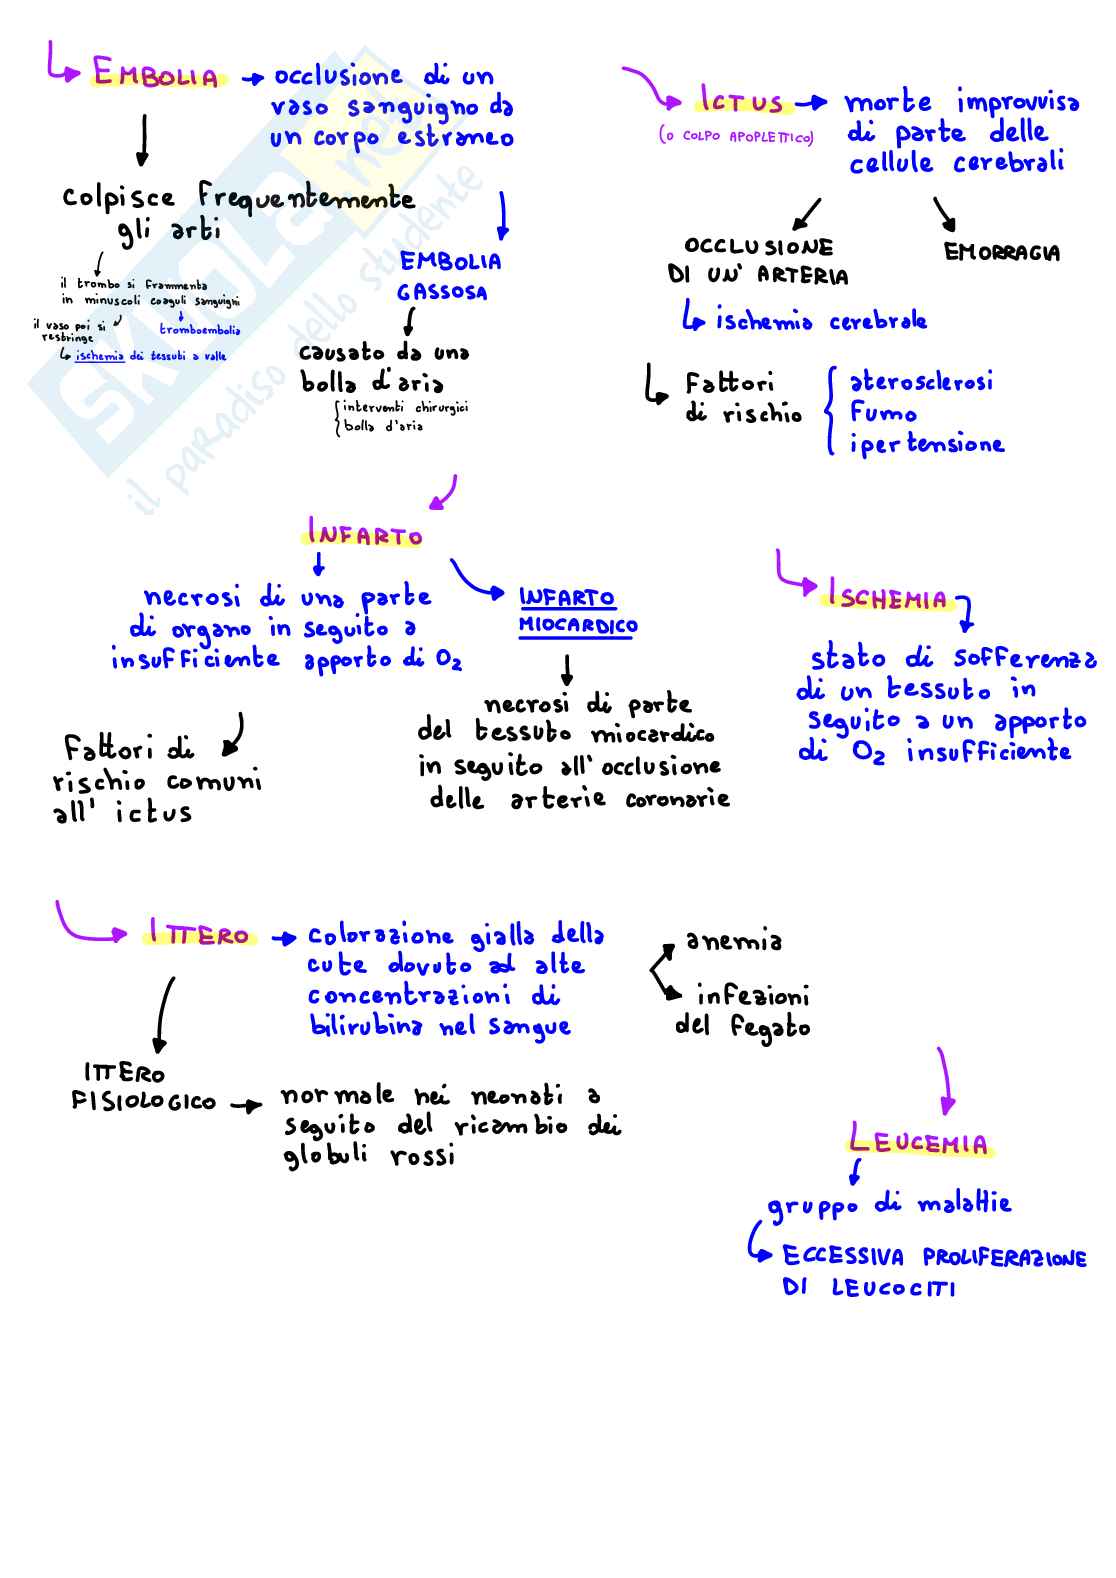 EMBOLIA → occlusione di un
vaso sanguigno da
un corpo estraneo
colpisce frequentemente
gli arti
il trombo si frammenta
in minuscoli coaguli sanguigni
il vaso poi si
restringe
tromboembolia
ischemia dei tessuti a valle
EMBOLIA
GASSOSA
causato da una
bolla d'aria
interventi chirurgici
bolla d'aria
ICTUS → morte improvvisa
(O COLPO APOPLETTICO)
di parte delle
cellule cerebrali
OCCLUSIONE
DI UN' ARTERIA
ischemia cerebrale
EMORRAGIA
Fattori
di rischio
aterosclerosi
Fumo
ipertensione
INFARTO
necrosi di una parte
di organo in seguito a
insufficiente apporto di O₂
Fattori di
rischio comuni
all' ictus
INFARTO
MIOCARDICO
necrosi di parte
del tessuto miocardico
in seguito all'occlusione
delle arterie coronarie
ISCHEMIA
stato di sofferenza
di un tessuto in
seguito a un apporto
di O₂ insufficiente
ITTERO → colorazione gialla della
cute dovuto ad alte
concentrazioni di
bilirubina nel sangue
anemia
infezioni
del fegato
ITTERO
FISIOLOGICO → normale nei neonati a
seguito del ricambio dei
globuli rossi
LEUCEMIA
gruppo di malattie
ECCESSIVA PROLIFERAZIONE
DI LEUCOCITI
SKUOLA.net
il paradiso dello studente